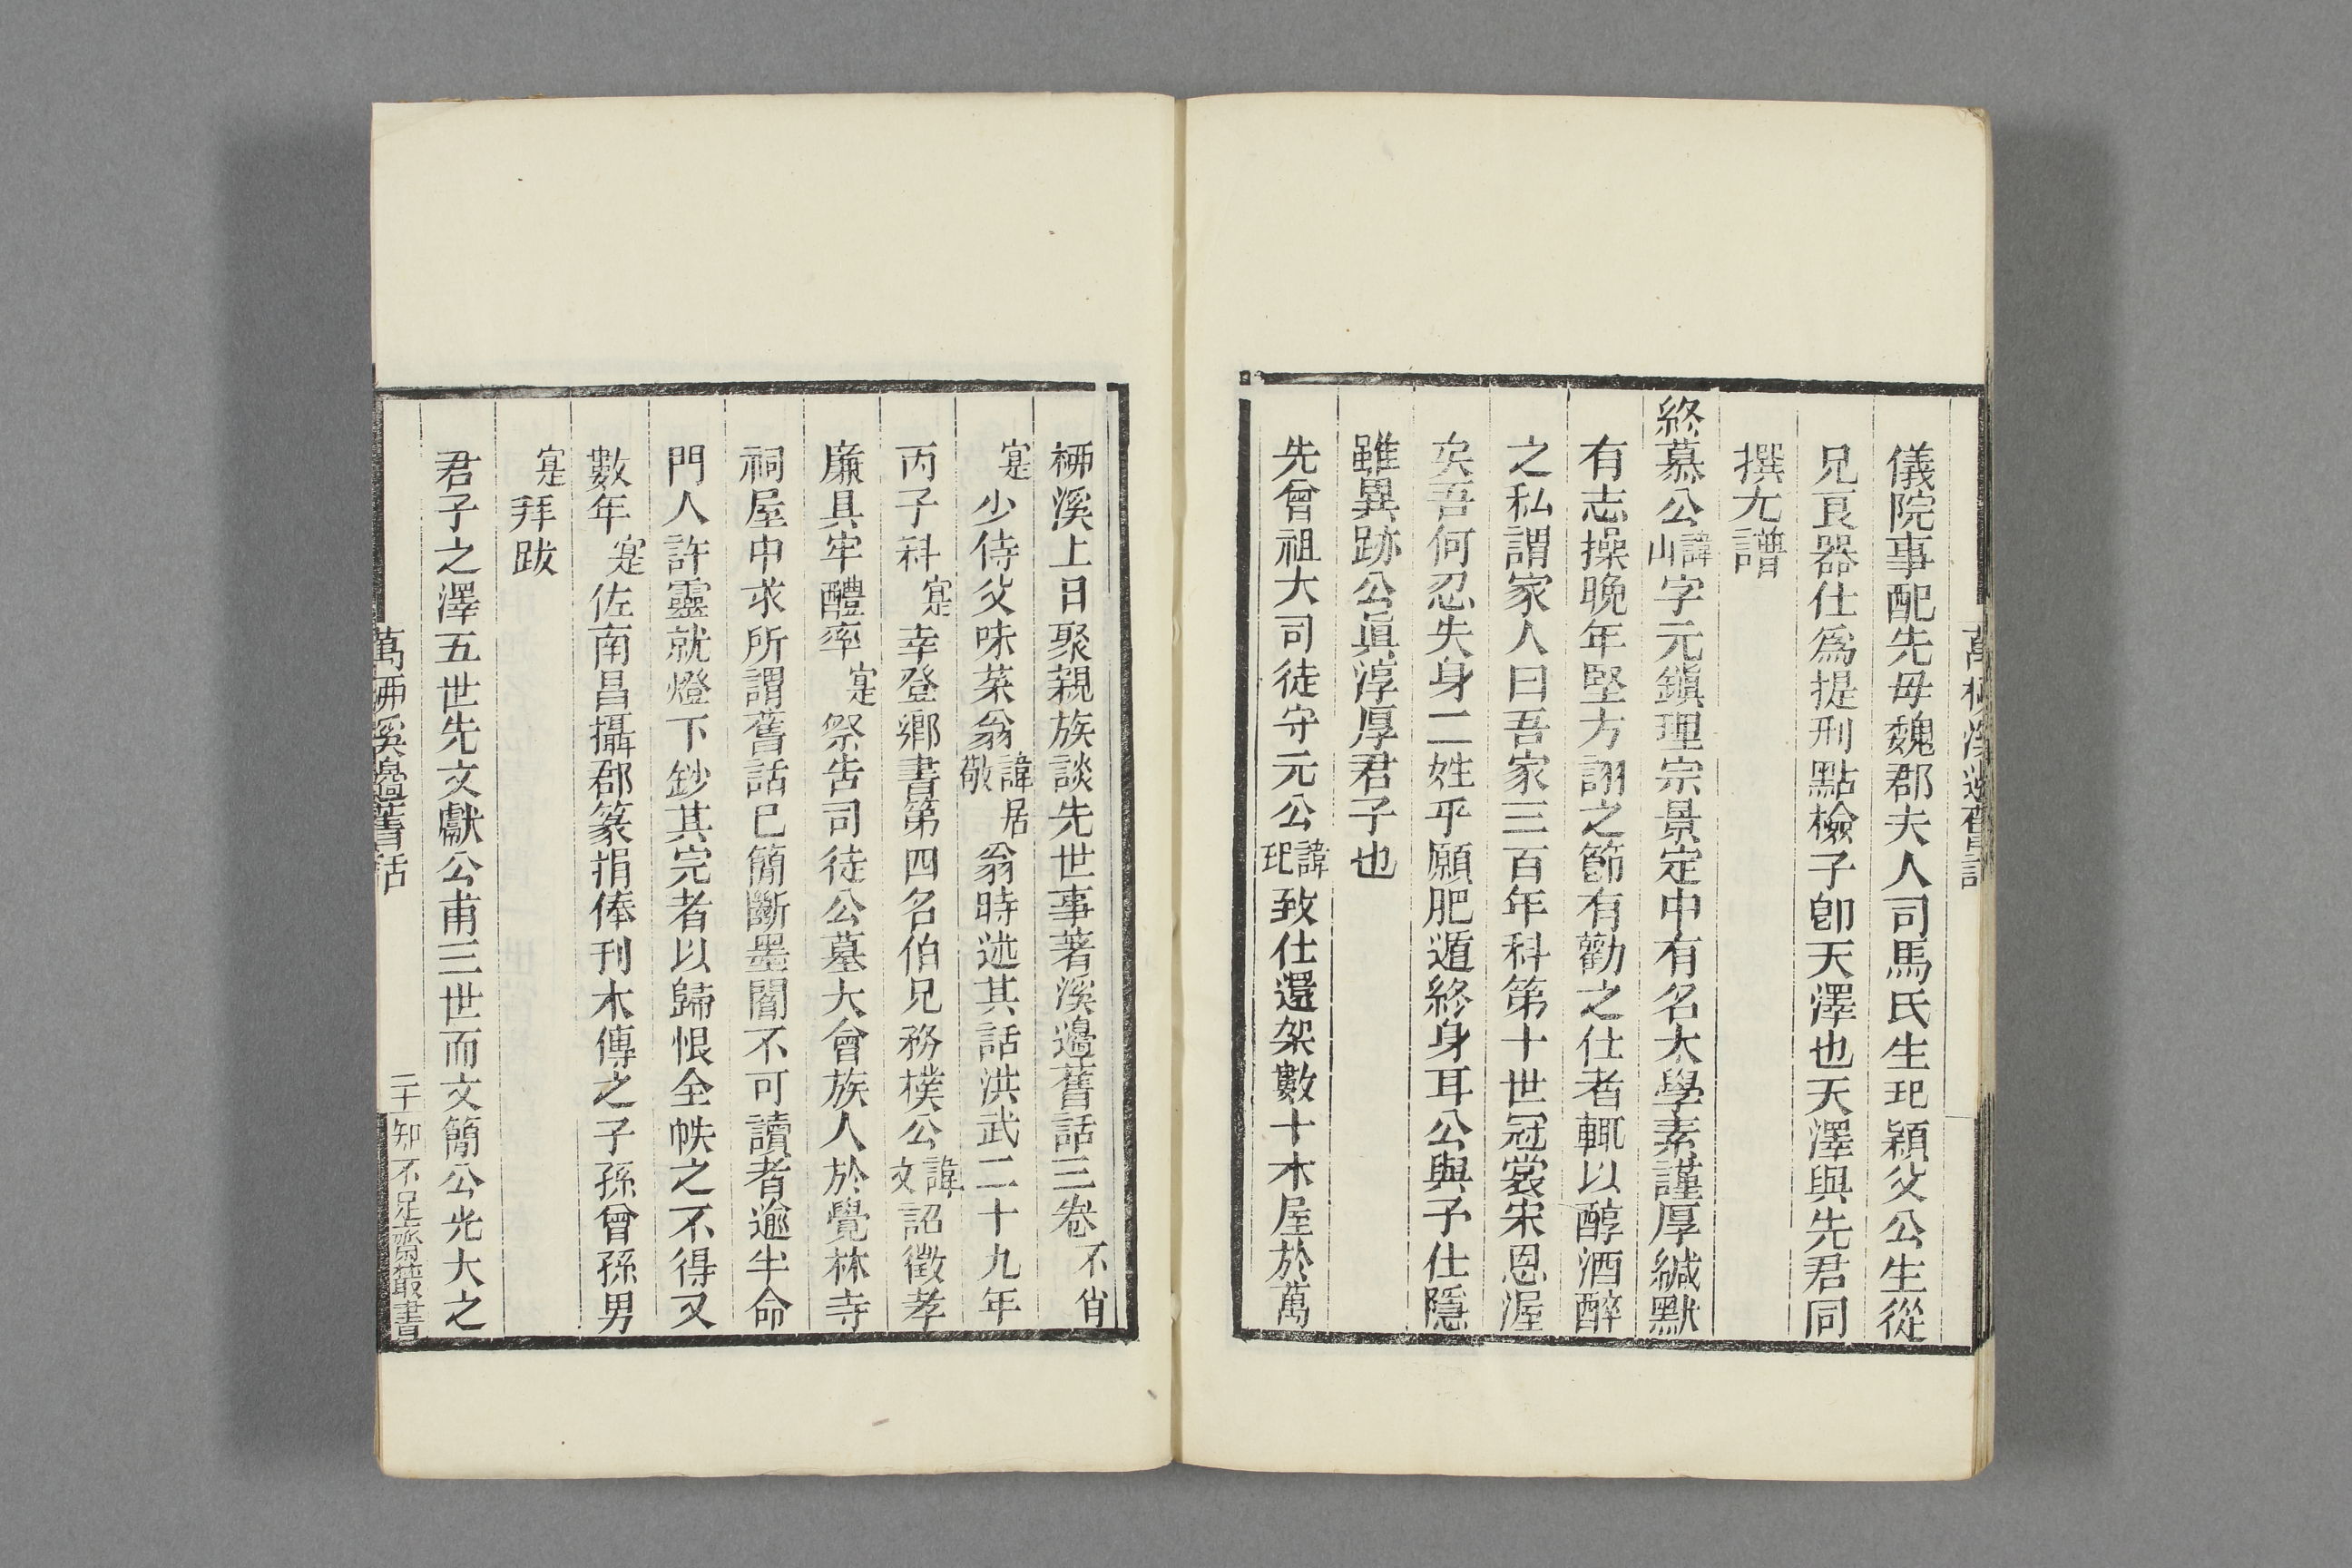 儀院事配先母魏郡夫人司馬氏生玘穎父公生從
兄良器仕爲提刑點檢子卽天澤也天澤與先君同
撰尤譜
終慕公諱山字元鎭理宗景定中有名太學素謹厚緘默
有志操晚年堅方詡之節有勸之仕者輒以醇酒醉
之私謂家人曰吾家三百年科第十世冠裳宋恩渥
矣吾何忍失身二姓乎願肥遁終身耳公與予仕隱
雖異跡公眞淳厚君子也
先曾祖大司徒守元公諱玘致仕還架數十木屋於萬
桞溪上日聚親族談先世事著溪邊舊話三卷不肖
寔少侍父味菜翁諱居敬翁時述其話洪武二十九年
丙子科寔幸登鄉書第四名伯兄務樸公諱文詔徵孝
廉具牢醴率寔祭告司徒公墓大會族人於覺林寺
祠屋中求所謂舊話已簡斷墨闇不可讀者逾半命
門人許靈就燈下鈔其完者以歸恨全帙之不得又
數年寔佐南昌攝郡篆捐俸刊木傳之子孫曾孫男
寔拜跋
君子之澤五世先文獻公甫三世而文簡公光大之
萬桞溪邊舊話
二十知不足齋叢書